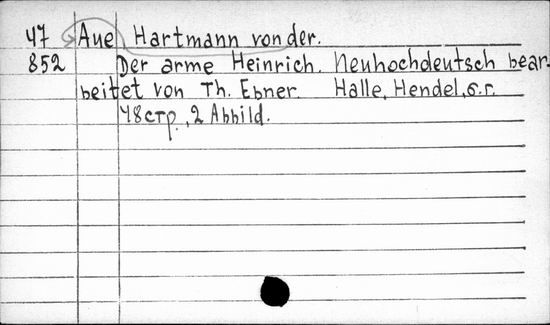 47 Aue Hartmann von der.
852 Der arme Heinrich. Neuhochdeutsch bear-
beitet von Th. Ebner. Halle, Hendel, s.г.
48 стр., 2 Abbild.